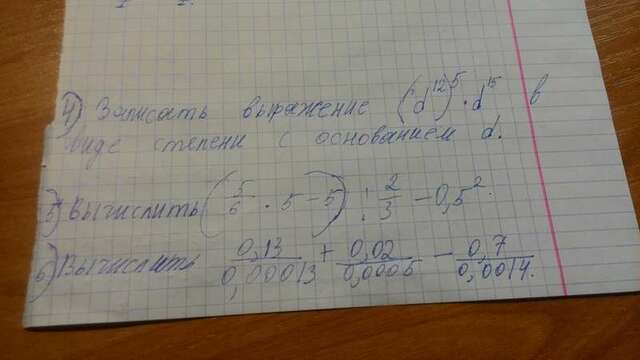 4) Записать выражение (d¹²)⁵ · d¹⁵ в
виде степени с основанием d.
5) Вычислить (5/6 · 5 - 5) : 2/3 - 0,5².
6) Вычислить 0,13/0,00013 + 0,02/0,0005 - 0,7/0,0014.